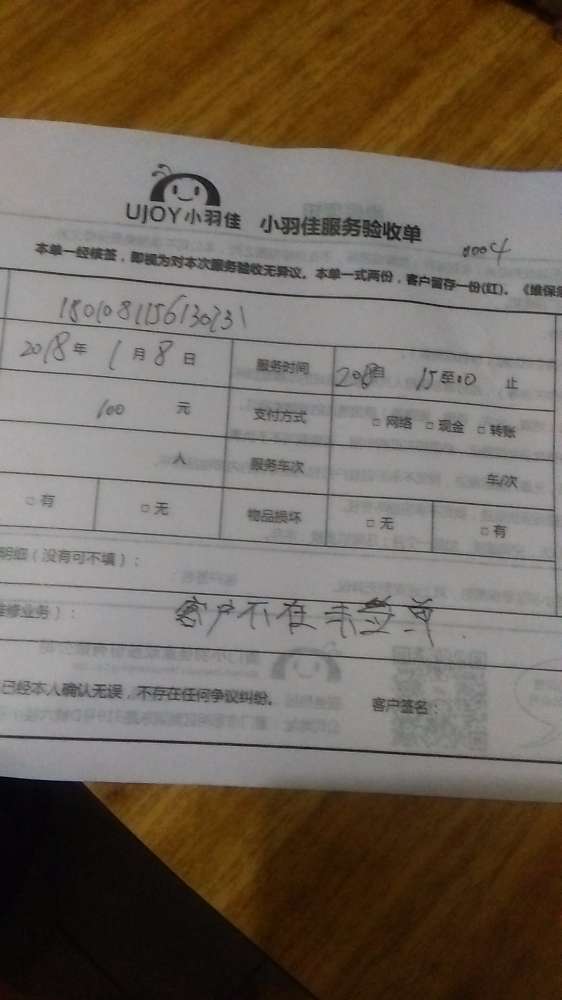 UJOY小羽佳 小羽佳服务验收单
0004
本单一经核签，即视为对本次服务验收无异议。本单一式两份，客户留存一份(红)。《维保
180108115613023\
2018年 1月8日 服务时间 15至 止
100 元 支付方式 □ 网络 □ 现金 □ 转账
人 服务车次 车/次
□ 有 □ 无 物品损坏 □ 无 □ 有
明细（没有可不填）：
修业务）： 客户不在 未签单
已经本人确认无误，不存在任何争议纠纷。 客户签名：